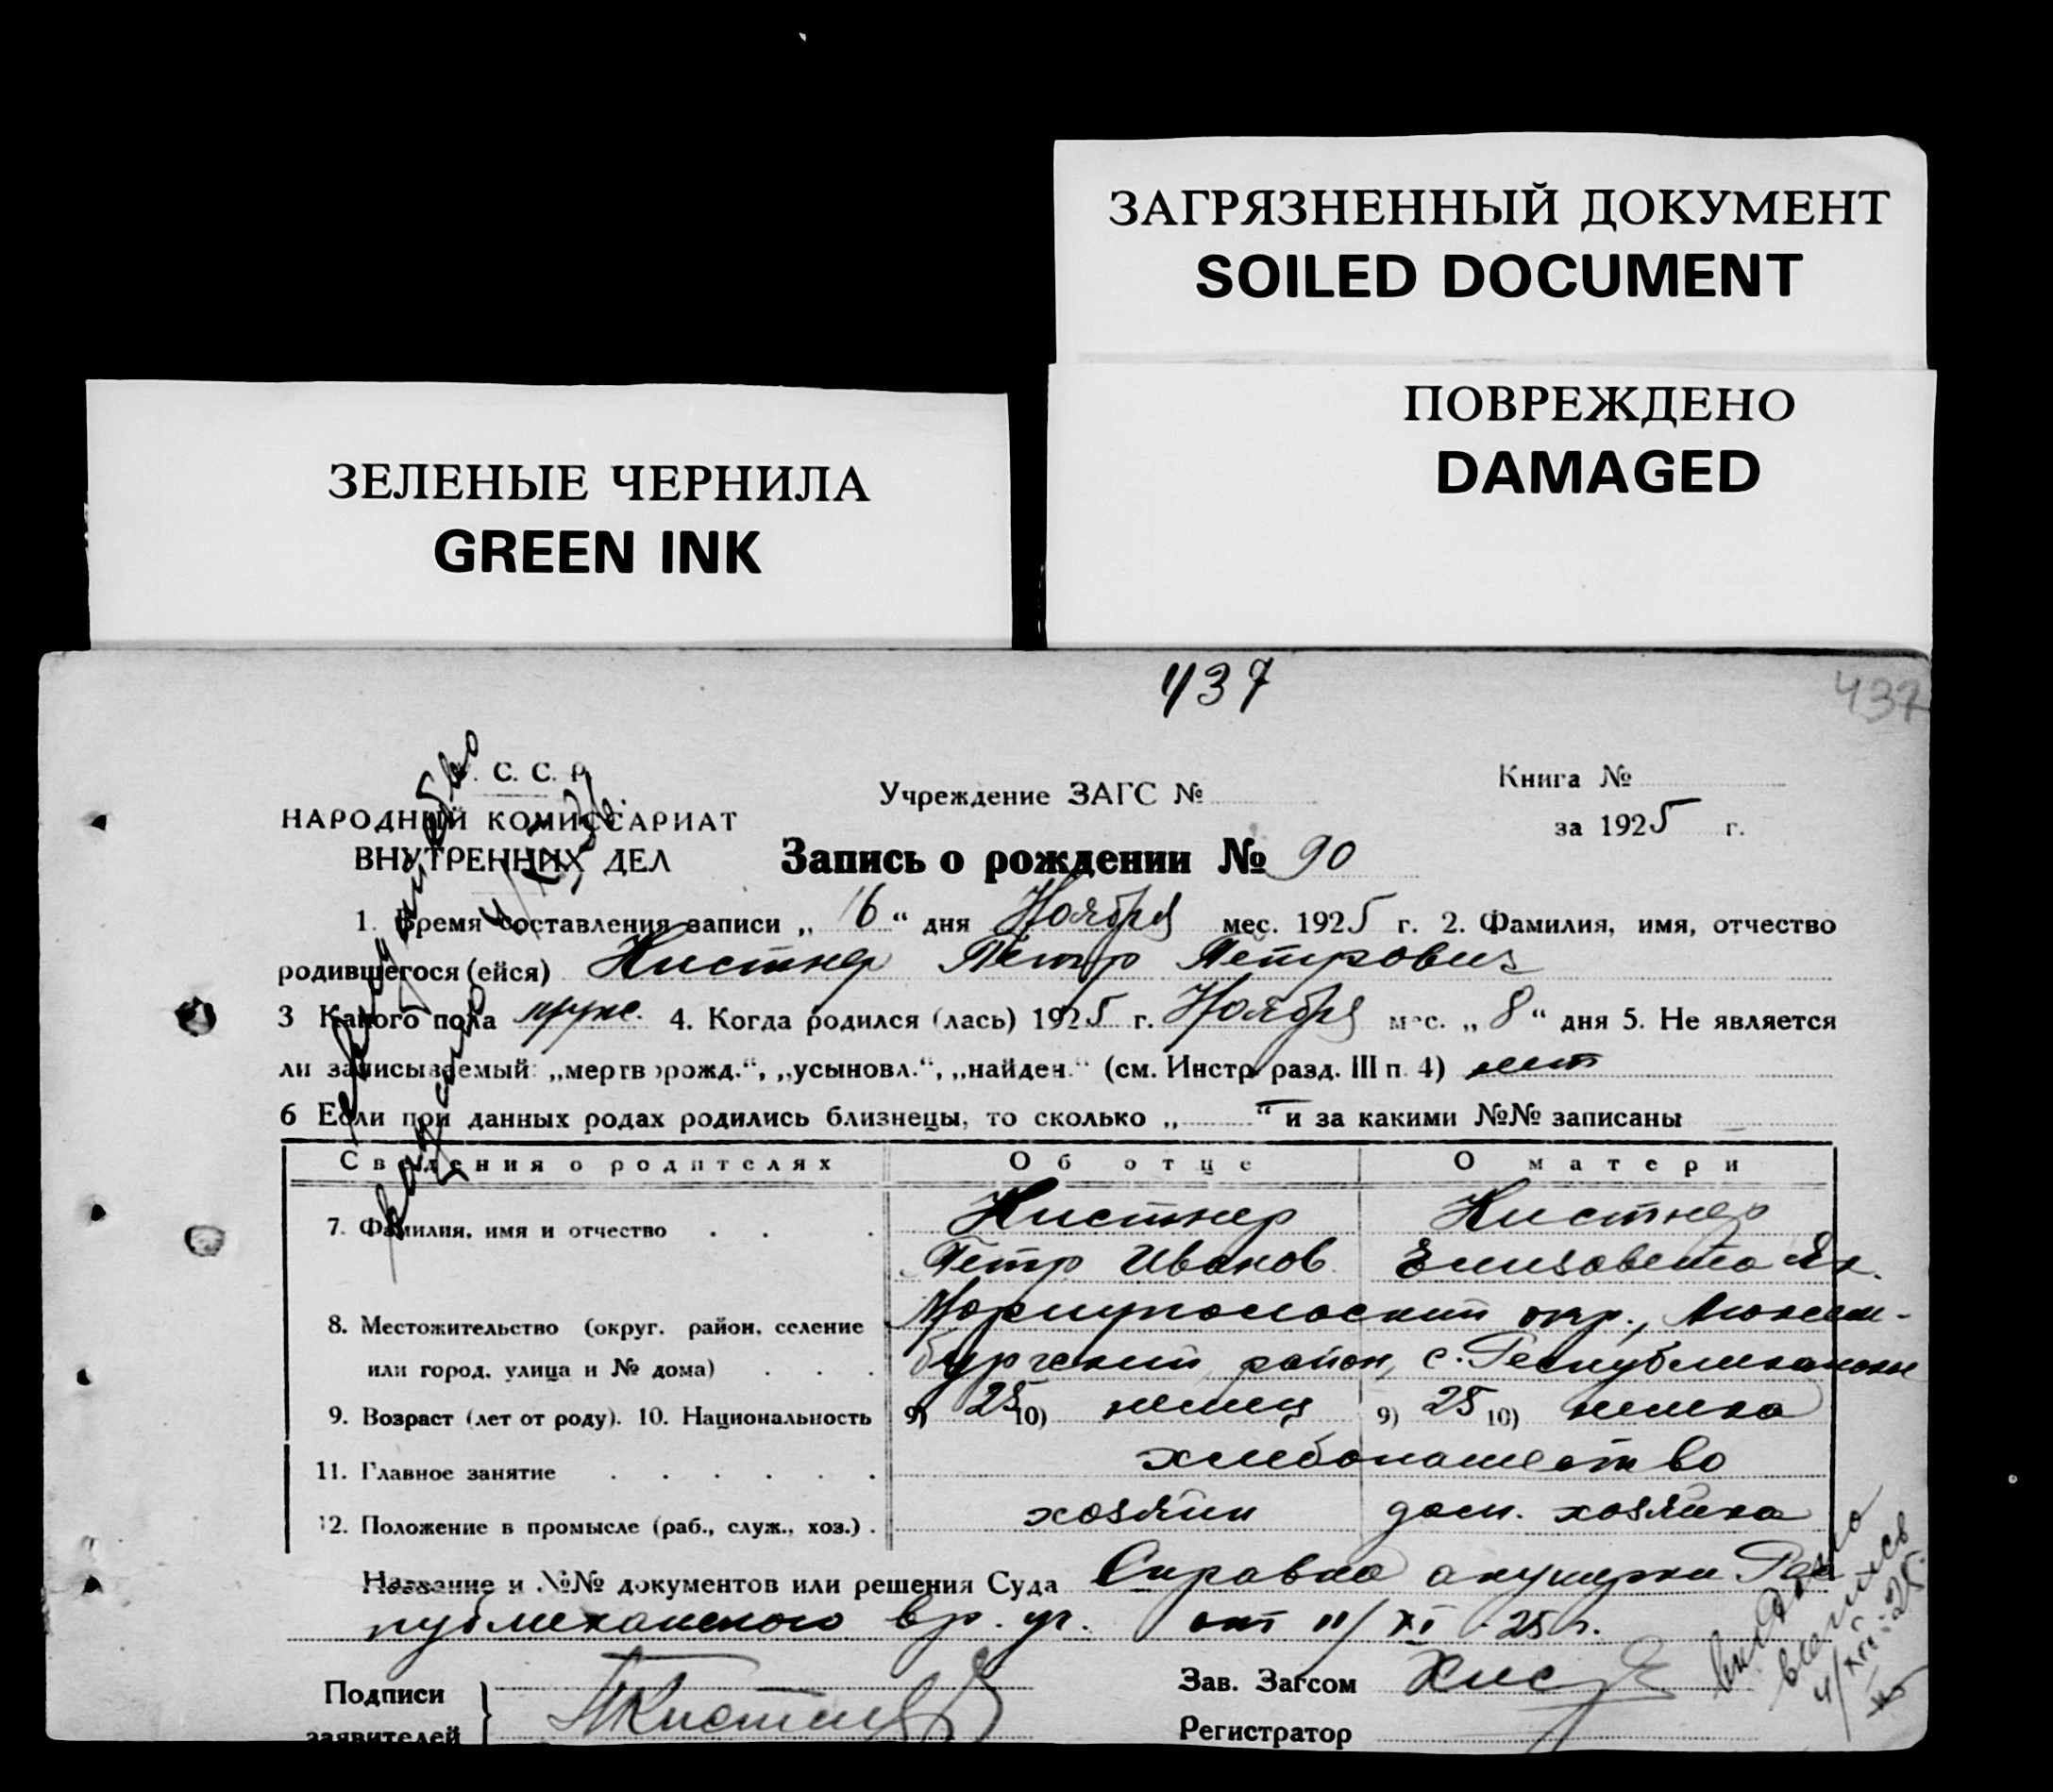 ЗАГРЯЗНЕННЫЙ ДОКУМЕНТ
SOILED DOCUMENT
ПОВРЕЖДЕНО
DAMAGED
ЗЕЛЕНЫЕ ЧЕРНИЛА
GREEN INK
437
437
С. С. Р.
НАРОДНЫЙ КОМИССАРИАТ
ВНУТРЕННИХ ДЕЛ
Учреждение ЗАГС №
Книга №
за 1925 г.
Запись о рождении № 90
1. Время составления записи „ 16 “ дня Ноября мес. 1925 г. 2. Фамилия, имя, отчество
родившегося (ейся) Кистнер Петр Петрович
3 Какого пола муж. 4. Когда родился (лась) 1925 г. Ноября мес. „ 8 “ дня 5. Не является
ли записываемый: „мертворожд.“, „усыновл.“, „найден.“ (см. Инстр. разд. III п. 4) нет
6 Если при данных родах родились близнецы, то сколько „ “ и за какими №№ записаны
Сведения о родителях Об отце О матери
7. Фамилия, имя и отчество Кистнер Кистнер
Петр Иванов. Елизавета Як.
8. Местожительство (округ, район, селение Мариупольский окр., Люксем-
или город, улица и № дома) бургский район, с.
9. Возраст (лет от роду). 10. Национальность 9) 25 10) немец 9) 25 10) немка
11. Главное занятие хлебопашество
12. Положение в промысле (раб., служ., хоз.) хозяин дом. хозяйка
Название и №№ документов или решения Суда Справка акушерки Рес
публиканского вр. уч. от 11/XI 25 г.
Подписи
заявителей
Зав. Загсом
Регистратор